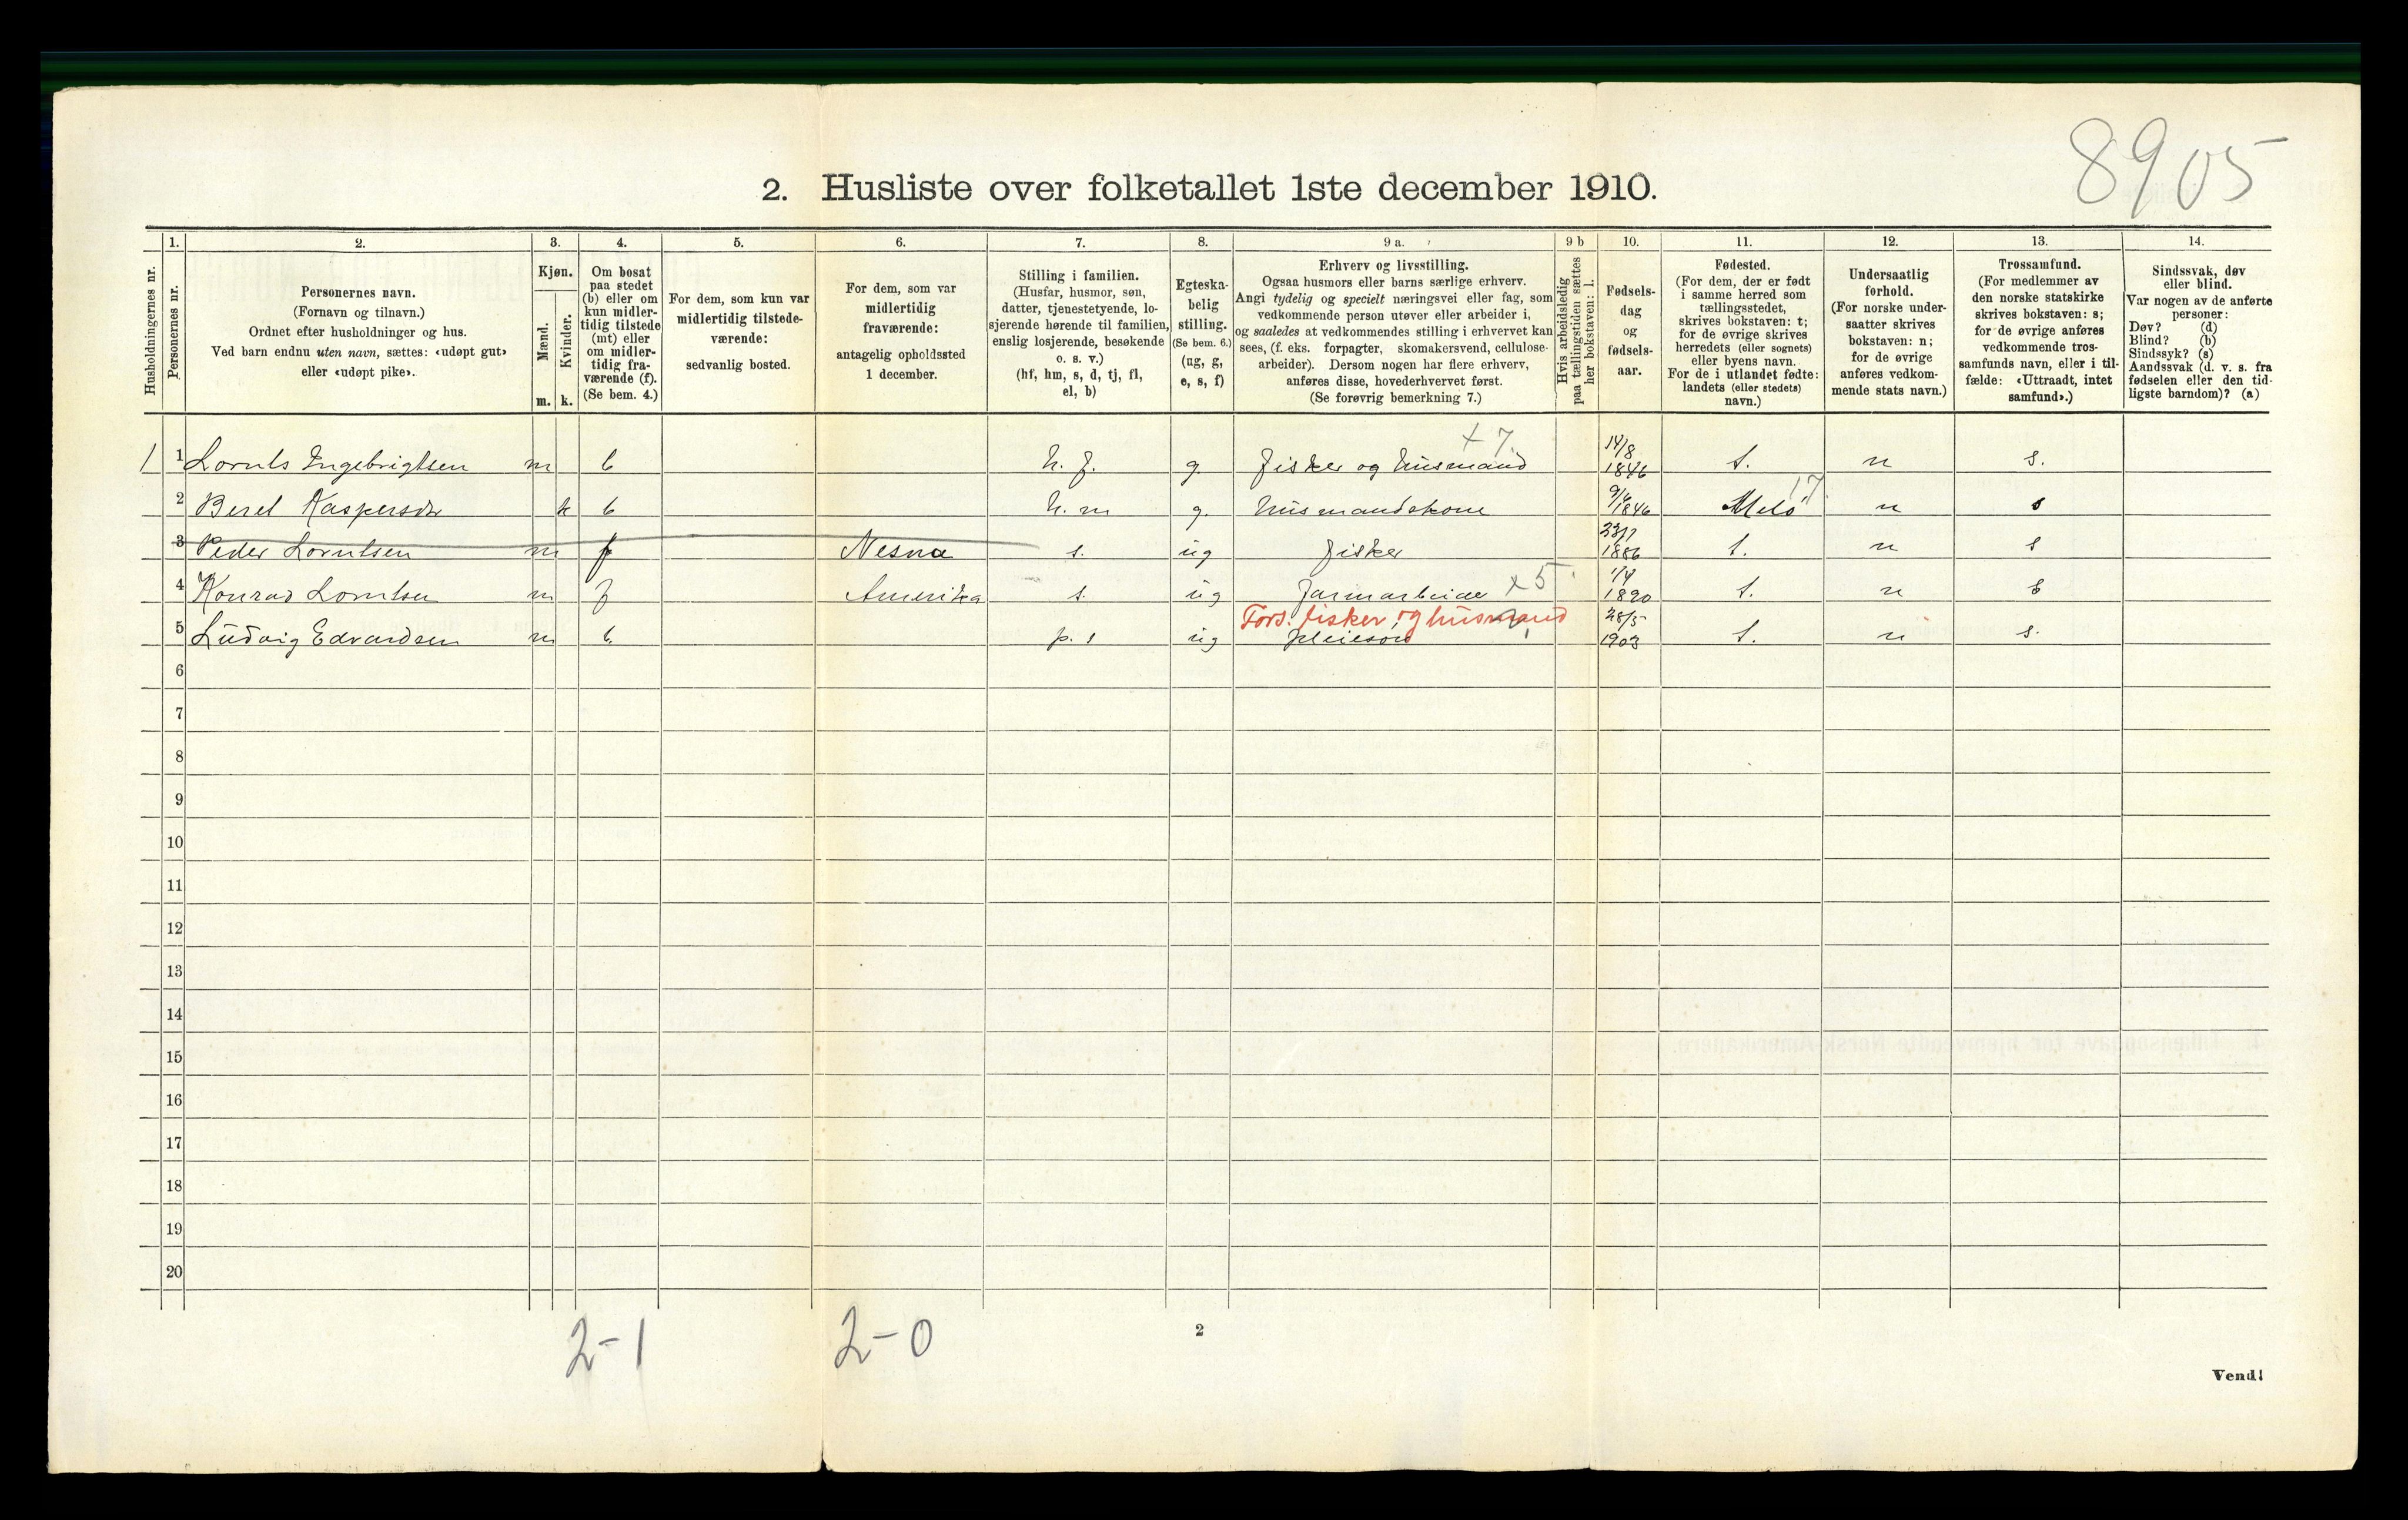 8905
2. Husliste over folketallet 1ste december 1910.
1. 2. 3. 4. 5. 6. 7. 8. 9 a. 9 b 10. 11. 12. 13. 14.
Husholdningernes nr.
Personernes nr.
Personernes navn.
(Fornavn og tilnavn.)
Ordnet efter husholdninger og hus.
Ved barn endnu uten navn, sættes: «udøpt gut»
eller «udøpt pike».
Kjøn.
Mænd.
Kvinder.
m. k.
Om bosat
paa stedet
(b) eller om
kun midler-
tidig tilstede
(mt) eller
om midler-
tidig fra-
værende (f).
(Se bem. 4.)
For dem, som kun var
midlertidig tilstede-
værende:
sedvanlig bosted.
For dem, som var
midlertidig
fraværende:
antagelig opholdssted
1 december.
Stilling i familien.
(Husfar, husmor, søn,
datter, tjenestetyende, lo-
sjerende hørende til familien,
enslig losjerende, besøkende
o. s. v.)
(hf, hm, s, d, tj, fl,
el, b)
Egteska-
belig
stilling.
(Se bem. 6.)
(ug, g,
e, s, f)
Erhverv og livsstilling.
Ogsaa husmors eller barns særlige erhverv.
Angi tydelig og specielt næringsvei eller fag, som
vedkommende person utøver eller arbeider i,
og saaledes at vedkommendes stilling i erhvervet kan
sees, (f. eks. forpagter, skomakersvend, cellulose-
arbeider). Dersom nogen har flere erhverv,
anføres disse, hovederhvervet først.
(Se forøvrig bemerkning 7.)
Hvis arbeidsledig
paa tællingstiden sættes
her bokstaven: l.
Fødsels-
dag
og
fødsels-
aar.
Fødested.
(For dem, der er født
i samme herred som
tællingsstedet,
skrives bokstaven: t;
for de øvrige skrives
herredets (eller sognets)
eller byens navn.
For de i utlandet fødte:
landets (eller stedets)
navn.)
Undersaatlig
forhold.
(For norske under-
saatter skrives
bokstaven: n;
for de øvrige
anføres vedkom-
mende stats navn.)
Trossamfund.
(For medlemmer av
den norske statskirke
skrives bokstaven: s;
for de øvrige anføres
vedkommende tros-
samfunds navn, eller i til-
fælde: «Uttraadt, intet
samfund».)
Sindssvak, døv
eller blind.
Var nogen av de anførte
personer:
Døv? (d)
Blind? (b)
Sindssyk? (s)
Aandssvak (d. v. s. fra
fødselen eller den tid-
ligste barndom)? (a)
+7
1 1 Lornts Ingebrigtsen m b h. f. g. Fisker og husmand 14/8 1846 t. n s.
2 Beret Kaspersdr k b h. m g. husmandskone 9/6 1846 Melö 17 n s
3 Peder Lorntsen m f Nesna s. ug fisker 23/7 1886 t. n s
4 Konrad Lorntsen m f Amerika s. ug farmarbeider x5 1/4 1890 t. n s
Fors. fisker og husmand
5 Ludvig Edvardsen m b p. s ug pleiesön 28/5 1903 t. n s.
6
7
8
9
10
11
12
13
14
15
16
17
18
19
20
2-1 2-0
2
Vend!